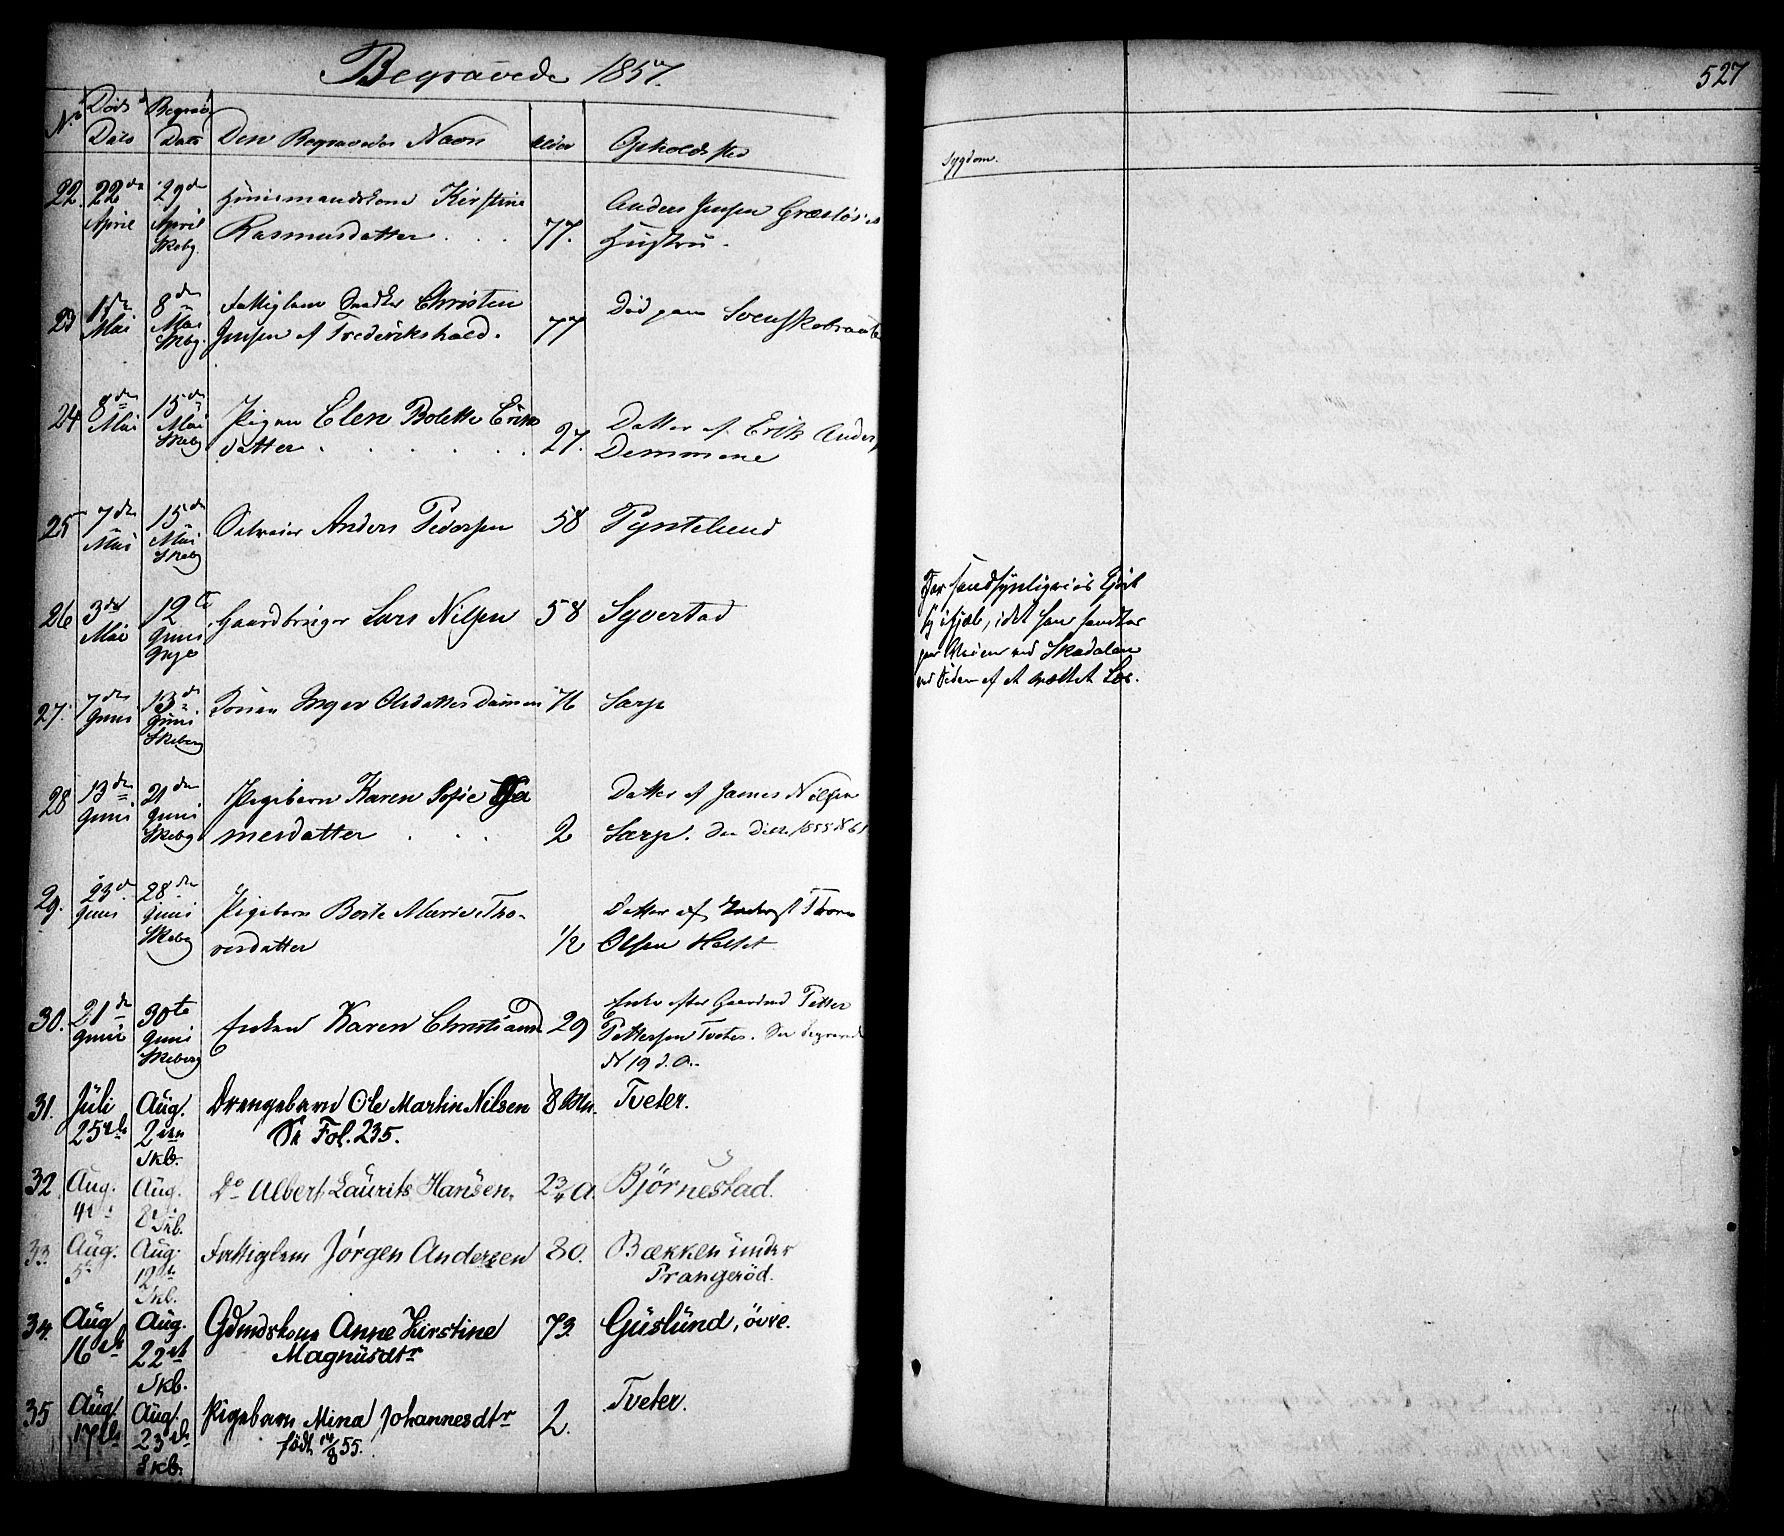 Begravede 1857.
527
No Døds Dato Begrav. Dato Den Begravedes Navn Alder Opholdssted
Sygdom.
22. 22de April 29de April Skebg. Huusmandskone Kirstine
Rasmusdatter . . . 77. Anders Jensen
Hustru.
23 1ste Mai 8de Mai Skebg. Fattiglem Snedker Christen
Jensen af Frederikshald. 77 Død paa
24 8de Mai 15de Mai Skebg Pigen Elen Bolette Eriks
datter . . . . . . 27. Datter af Erik Anders
Demmene
25 7de Mai 15de Mai Skebg Anders Pedersen 58 Pyntelund
26 3die Mai 12te Juni Gaardbruger Lars Nilsen 58 Syverstad
Har sandsynligviis
ihjæl, idet han
paa Veien ved Skadalen
ved Siden af et væltet Læs.
27. 7de Juni 13de Juni Skeberg Inger Olsdatter 76 Sarp
28 13de Juni 21de Juni Skebg Pigebarn Karen Sofie Ja
mesdatter . . . 2 Datter af James Nilsen
Sarp. See Døbte 1855 N 61
29. 23de Juni 28de Juni Skebg Pigebarn Berte Marie Tho-
resdatter 1/2 Datter af Thore
Olsen
30. 21de Juni 30te Juni Skeberg Enken Karen Christians 29 Enke efter Gaardmd Petter
Pettersen Tveter. See Begravede
N 19 d. A.
31. Juli 25de Aug. 2den Skb. Drengebarn Ole Martin Nilsen 8 Mdr. Tveter.
Se Fol. 235.
32 Aug. 4de Aug. 8de Skb. Do Albert Laurits Hansen. 2 3/4 A. Bjørnestad.
33. Aug. 5te Aug. 12te Skb. Fattiglem Jørgen Andersen 80. Bækken under
Prangerød.
34. Aug 16de Aug. 22de Skb. Gdmdskone Anne Kirstine 73. Guslund, øvre.
Magnusdtr
35 Aug. 17de Aug. 23de Skb. Pigebarn Mina Johannesdtr 2. Tveter.
født 14/8 55.